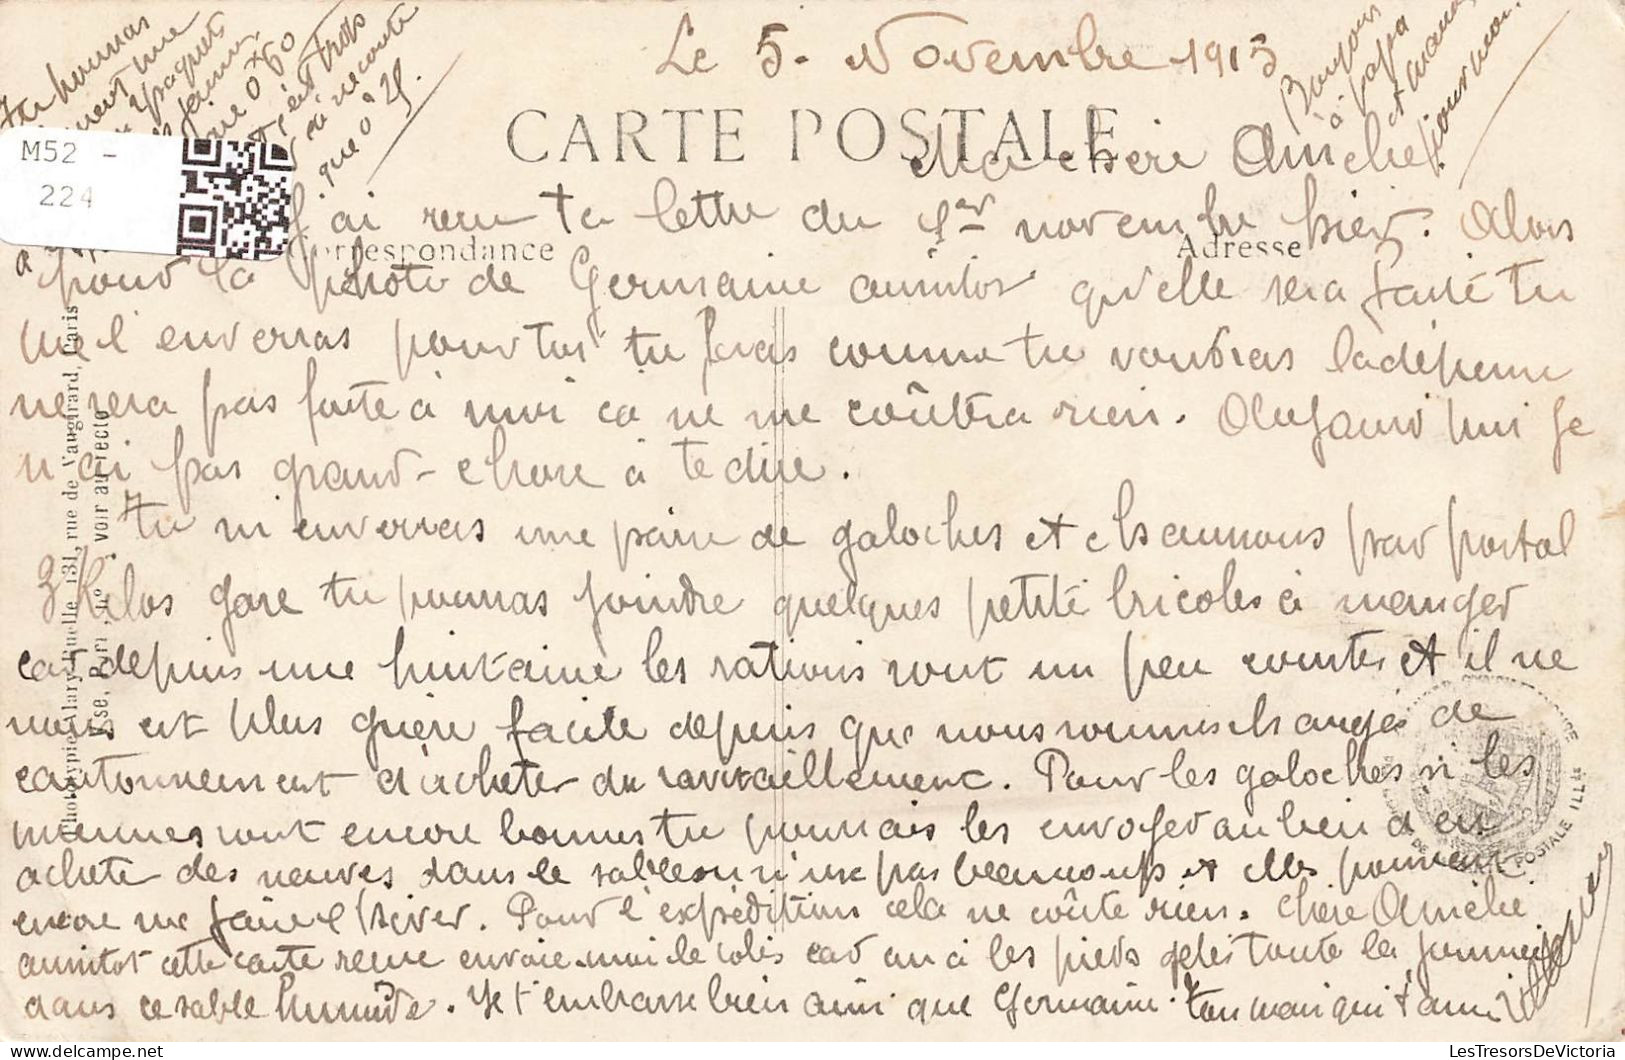 Le 5. Novembre 1915
CARTE POSTALE
Ma chère Amélie
J'ai reçu ta lettre du 1er novembre hier. Alors
Correspondance
Adresse
pour la photo de Germaine aussitôt qu'elle sera faite tu
me l'enverras pour toi tu feras comme tu voudras la dépense
ne sera pas forte à moi ça ne me coûtera rien. Aujourd'hui je
n'ai pas grand-chose à te dire.
Tu m'enverras une paire de galoches et chaussons par postal
3 Kilos gare tu pourras joindre quelques petite bricoles à manger
car depuis une huitaine les rations sont un peu courtes et il ne
nous est plus guère facile depuis que nous sommes changés de
cantonnement d'acheter du ravitaillement. Pour les galoches si les
miennes sont encore bonnes tu pourrais les envoyer au lieu d'en
acheté des neuves dans le sable on n'use pas beaucoup et elles pourront
encore me faire l'hiver. Pour l'expédition cela ne coûte rien. Chère Amélie
aussitôt cette carte reçue envoie-moi le colis car on a les pieds gelés toute la journée
dans ce sable humide. Je t'embrasse bien ainsi que Germaine. Ton mari qui t'aime
Tu pourras
paquets
0 60
trois
ça ne coûte
que 0 25.
Bonjour
à papa
et maman
pour moi.
M52 -
224
131, rue de Vaugirard, Paris
voir au recto
POSTALE ILLée
LesTresorsDeVictoria